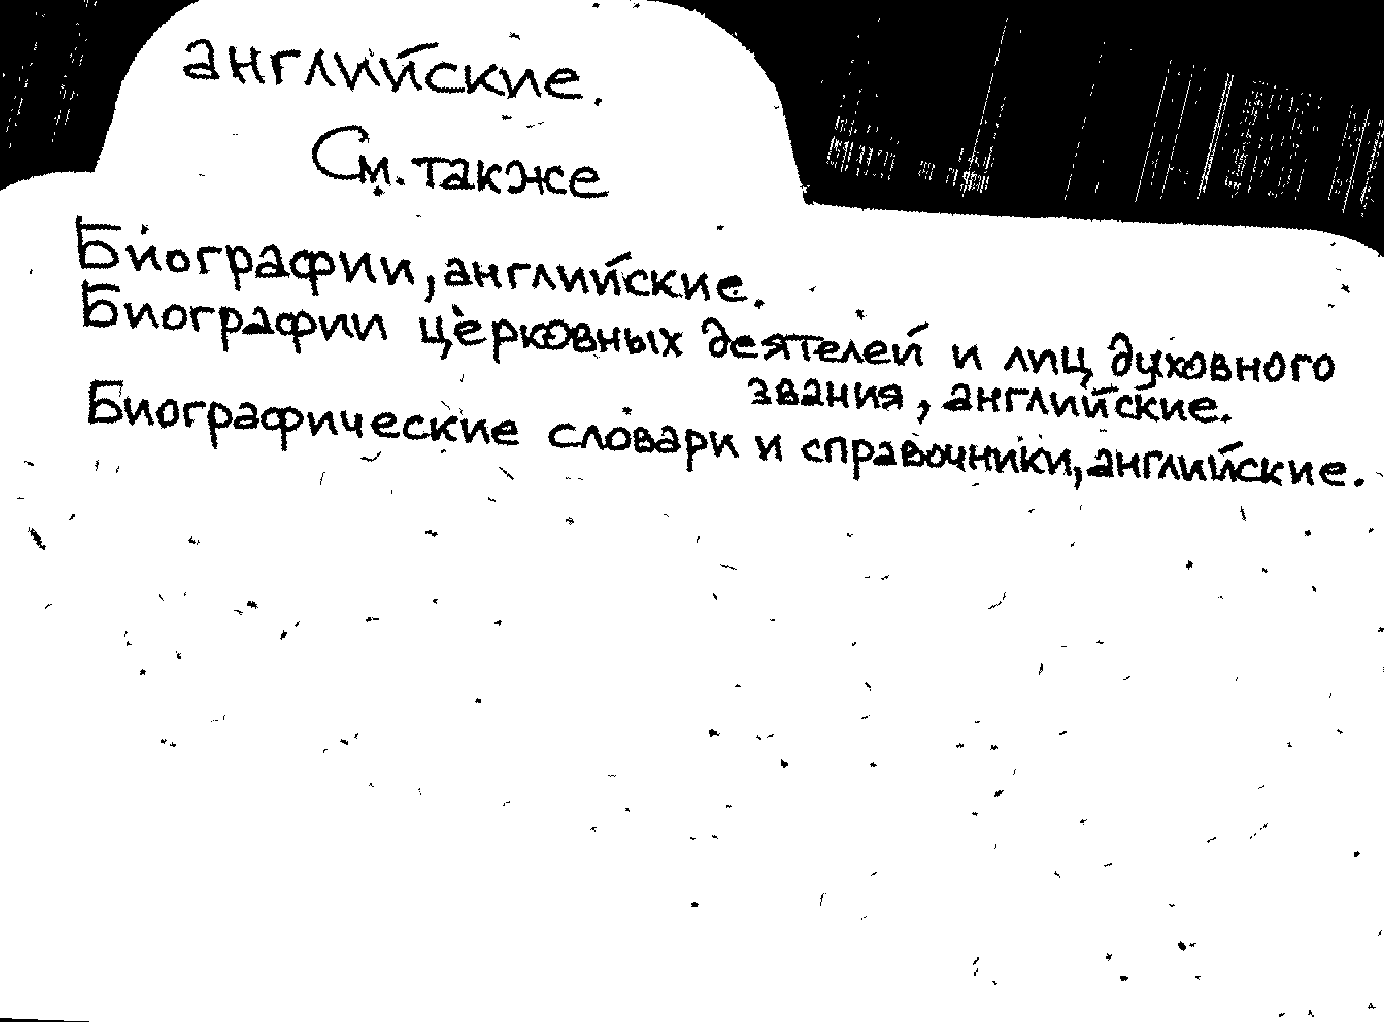 английские.
См. также
Биографии, английские.
Биографии церковных деятелей и лиц духовного
звания, английские.
Биографические словари и справочники, английские.